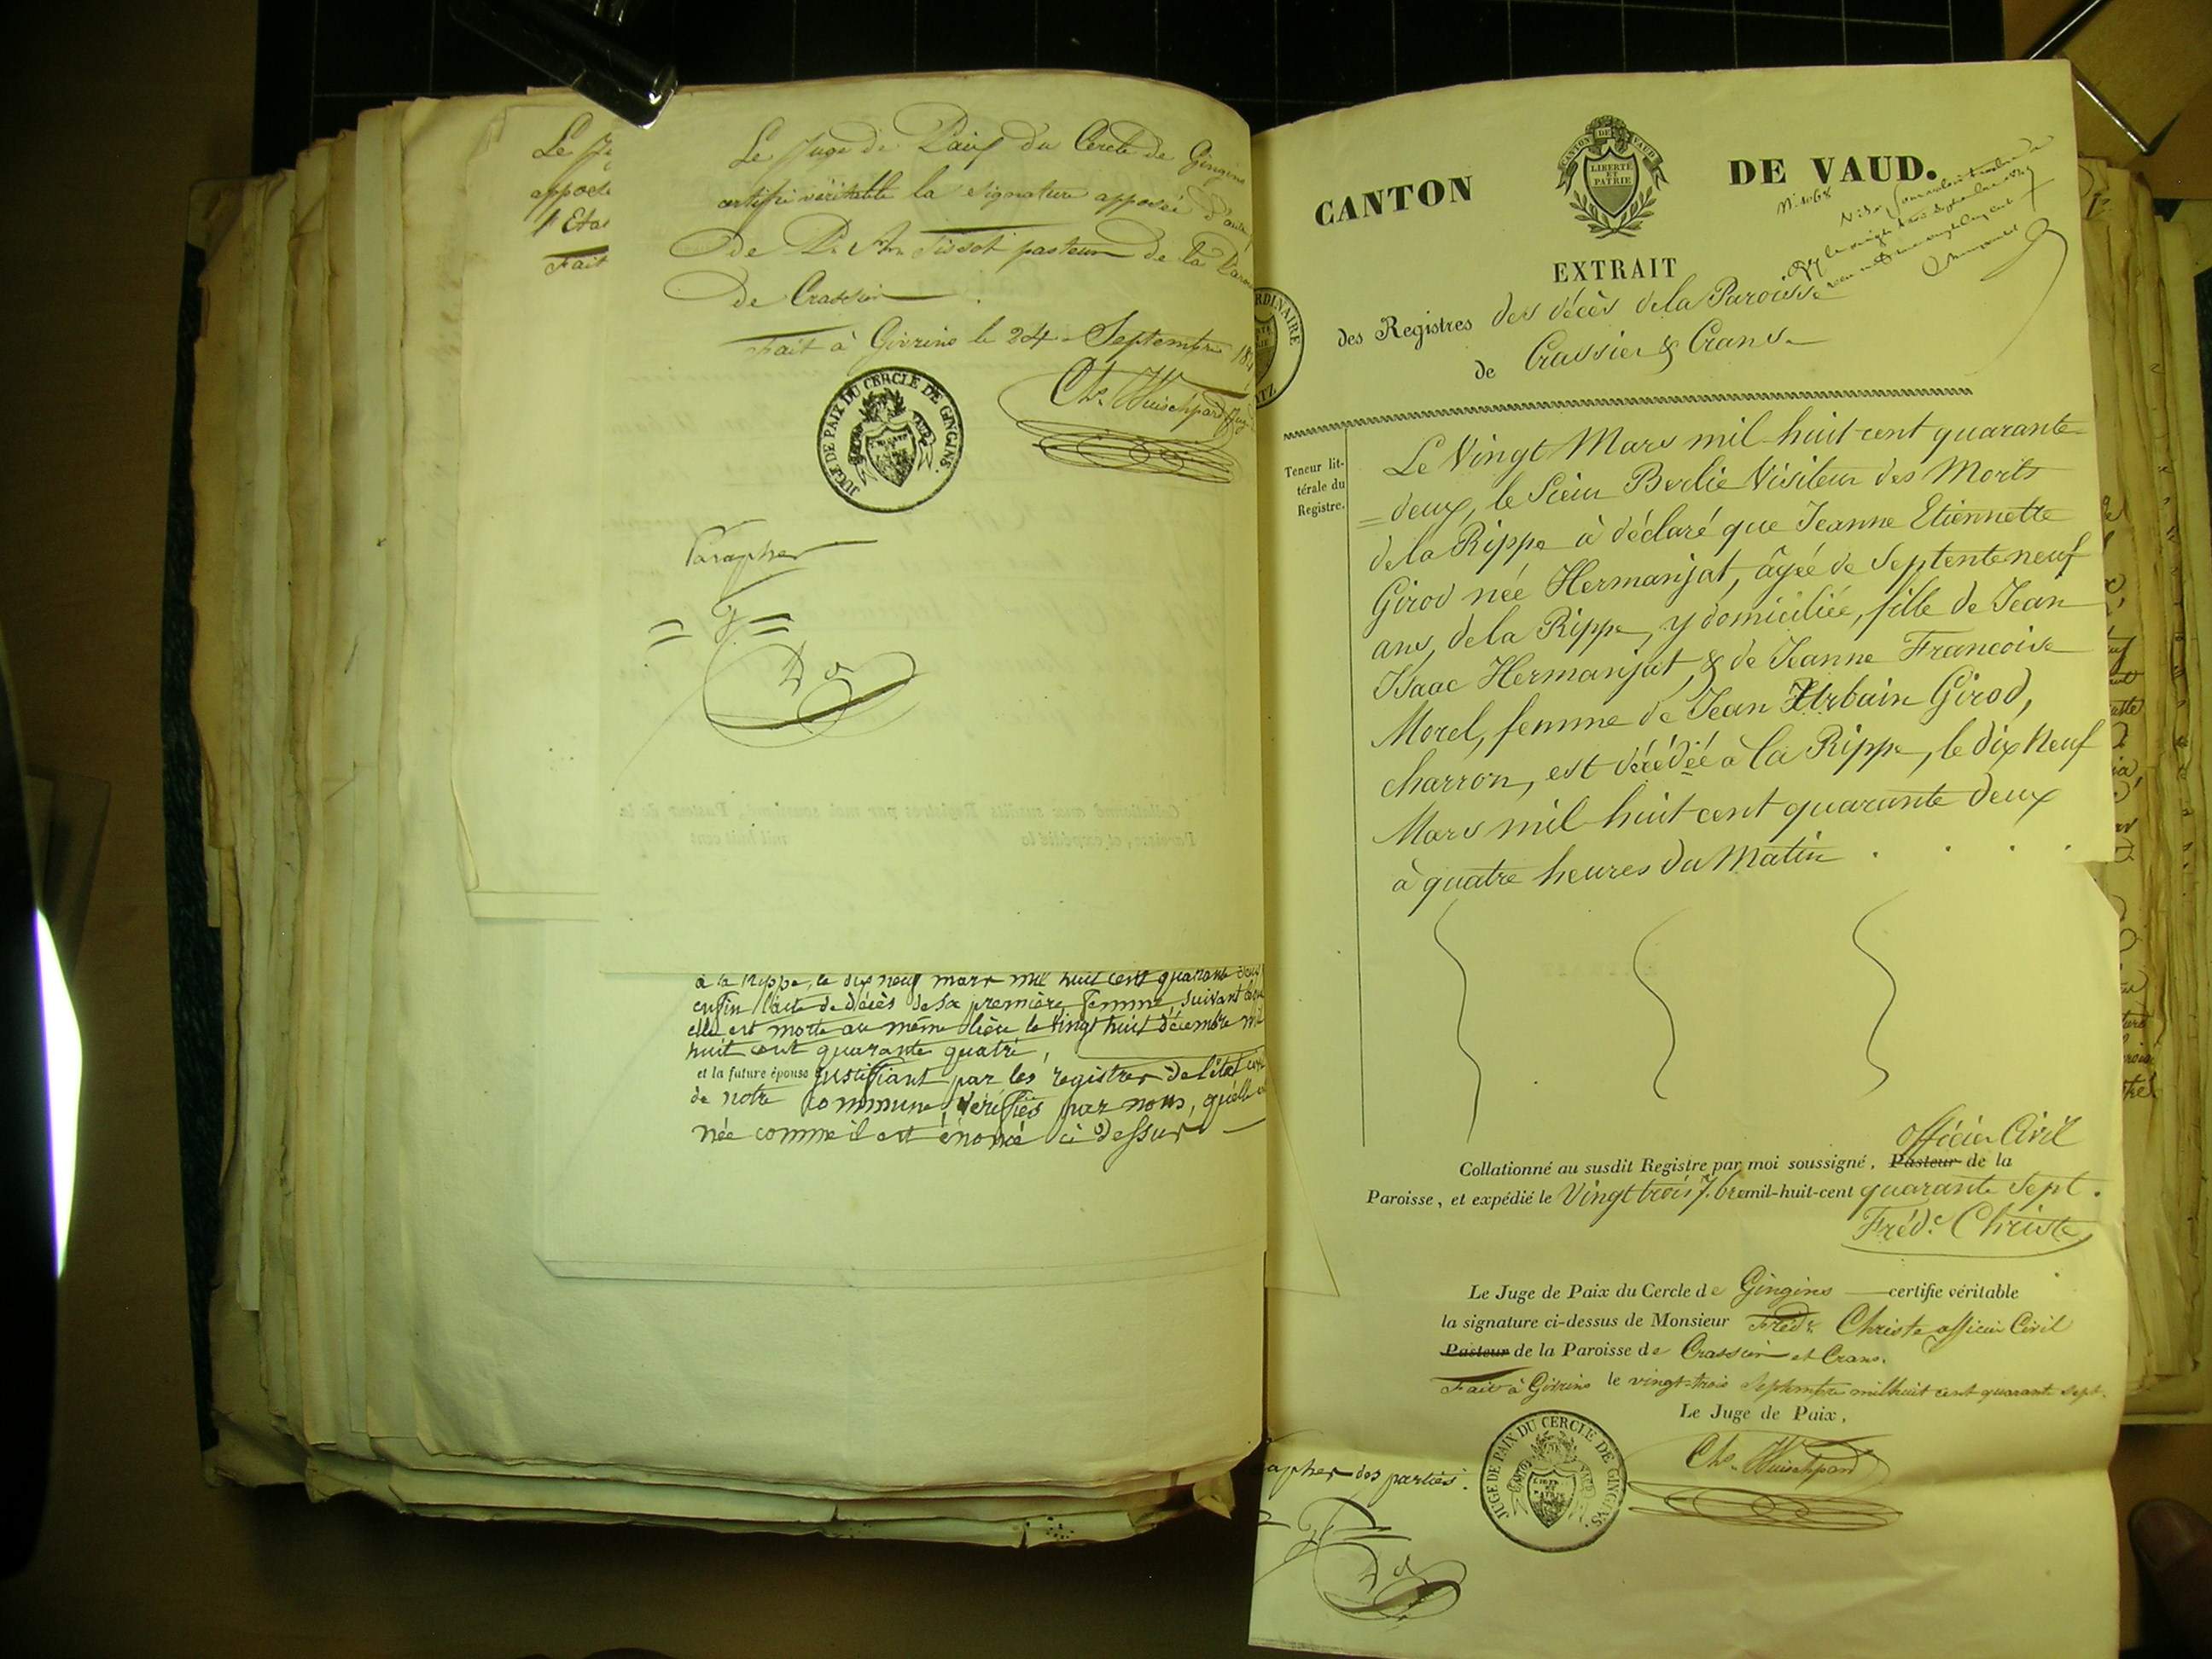 Le Juge de Paix du Cercle de Gingins
certifie véritable la signature apposée d'autre
de Mr Tissot pasteur de la
de Crassier
Fait à Givrins le 24 Septembre 184
JUGE DE PAIX DU CERCLE DE GINGINS.
Parapher
Le
appose
l'Etat
Fait
à la Rippe, le dix neuf mars mil huit cent quarante deux
enfin l'acte de décès de sa première femme, suivant
elle est morte au même lieu le vingt huit décembre mil
huit cent quarante quatre,
et la future épouse justifiant par les registres de l'état
de notre commune, vérifiés par nous, qu'elle
née comme il est énoncé ci dessus
CANTON DE VAUD.
CANTON DE VAUD
LIBERTÉ ET PATRIE
EXTRAIT
des Registres des décès de la Paroisse
de Crassier & Crans
Teneur lit-
térale du
Registre.
Le Vingt Mars mil-huit-cent quarante
=deux, le Sieur Berlie Visiteur des Morts
de la Rippe à déclaré que Jeanne Etiennette
Girod née Hermanjat, âgée de Septente neuf
ans, de la Rippe, y domiciliée, fille de Jean
Isaac Hermanjat, & de Jeanne Francoise
Morel, femme de Jean Urbain Girod,
charron, est décédée à la Rippe, le dix Neuf
Mars mil-huit cent quarante deux
à quatre heures du Matin . . . .
officier Civil
Collationné au susdit Registre par moi soussigné, Pasteur de la
Paroisse, et expédié le Vingt trois 7.bre mil-huit-cent quarante sept.
Fréd.c Christe
Le Juge de Paix du Cercle de Gingins certifie véritable
la signature ci-dessus de Monsieur Fréd.c Christe officier Civil
Pasteur de la Paroisse de Crassier et Crans.
Fait à Givrins le vingt-trois Septembre mil huit cent quarante sept.
Le Juge de Paix,
JUGE DE PAIX DU CERCLE DE GINGINS.
apher des parties.